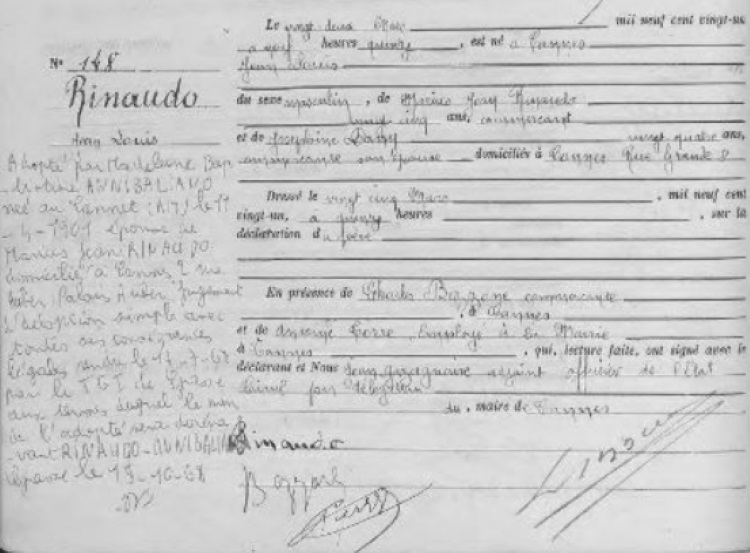 Nº 148
Rinaudo
Jean Louis
Adopté par Madeleine Bap
tistine ANNIBALIANO
née au Cannet (AM) le 17
-4-1901 épouse de
Marius Jean RINAUDO
domicilié à Cannes 2 rue
Auber, Palais Auber. Jugement
d'adoption simple avec
toutes ses conséquences
légales rendu le 12-7-68
par le TGI de Grasse
aux termes duquel le nom
de l'adopté sera doréna
vant RINAUDO-ANNIBALIANO
le 19-10-68
Le vingt deux Mars mil neuf cent vingt-un
à neuf heures quinze, est né à Cannes
Jean Louis
du sexe masculin, de Marius Jean Rinaudo
vingt cinq ans, commerçant
et de Josephine Dany vingt quatre ans,
commerçante son épouse domiciliés à Cannes Rue Grande 8
Dressé le vingt cinq Mars, mil neuf cent
vingt-un, à quinze heures, sur la
déclaration du père
En présence de Charles Bozzone commerçante
, à Cannes
et de Torre, Employé à la Mairie
à Cannes, qui, lecture faite, ont signé avec le
déclarant et Nous Jean adjoint officier de l'Etat
Civil par délégation
du, maire de Cannes
Rinaudo